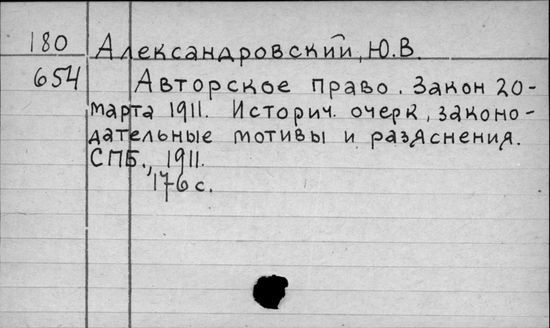 180 Александровский, Ю.В.
654 Авторское право. Закон 20-
марта 1911. Историч. очерк, законо-
дательные мотивы и разяснения.
СПБ., 1911.
176 с.